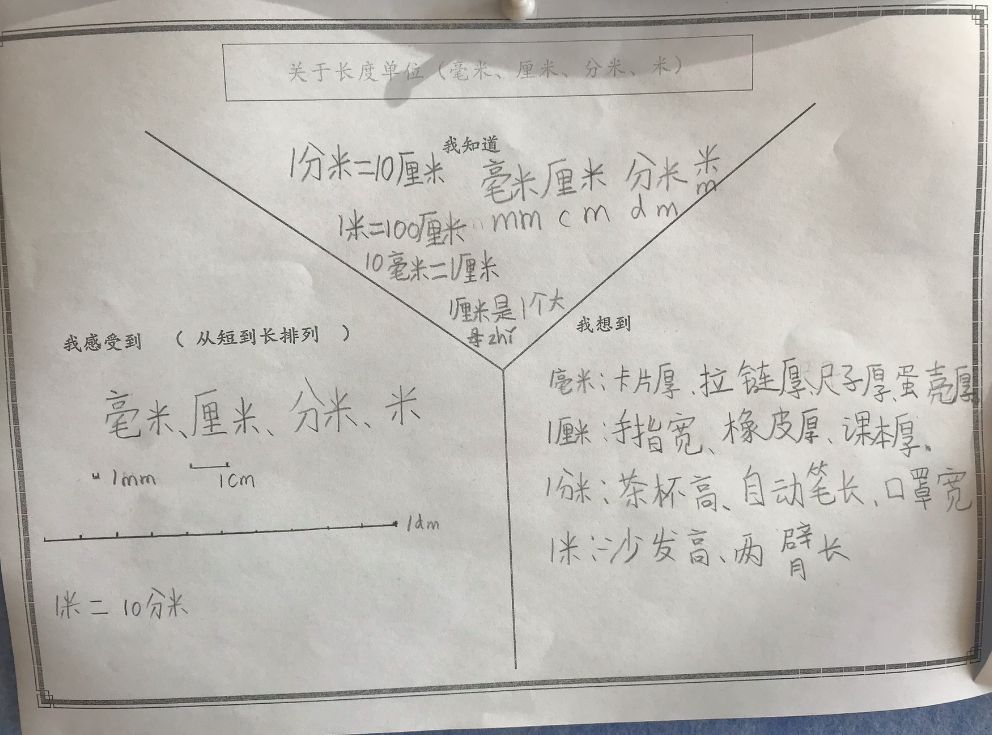 关于长度单位（毫米、厘米、分米、米）
我知道
1分米=10厘米 毫米 厘米 分米 米
mm cm dm m
1米=100厘米
10毫米=1厘米
1厘米是1个大
母zhǐ
我感受到 （从短到长排列）
毫米、厘米、分米、米
1mm 1cm
1dm
1米=10分米
我想到
毫米:卡片厚、拉链厚、尺子厚、蛋壳厚。
1厘米:手指宽、橡皮厚、课本厚。
1分米:茶杯高、自动笔长、口罩宽
1米:沙发高、两臂长